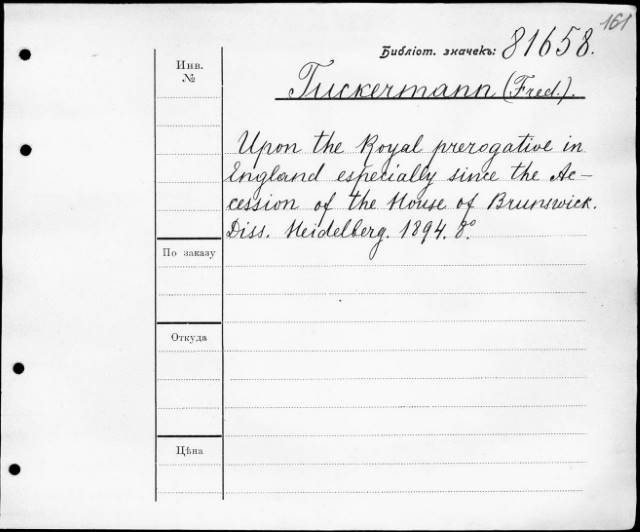 161
Библіот. значекъ: 81658.
Инв.
№
Tuckermann (Fred.).
Upon the Royal prerogative in
England especially since the Ac-
cession of the House of Brunswick.
Diss. Heidelberg. 1894. 8°.
По заказу
Откуда
Цѣна